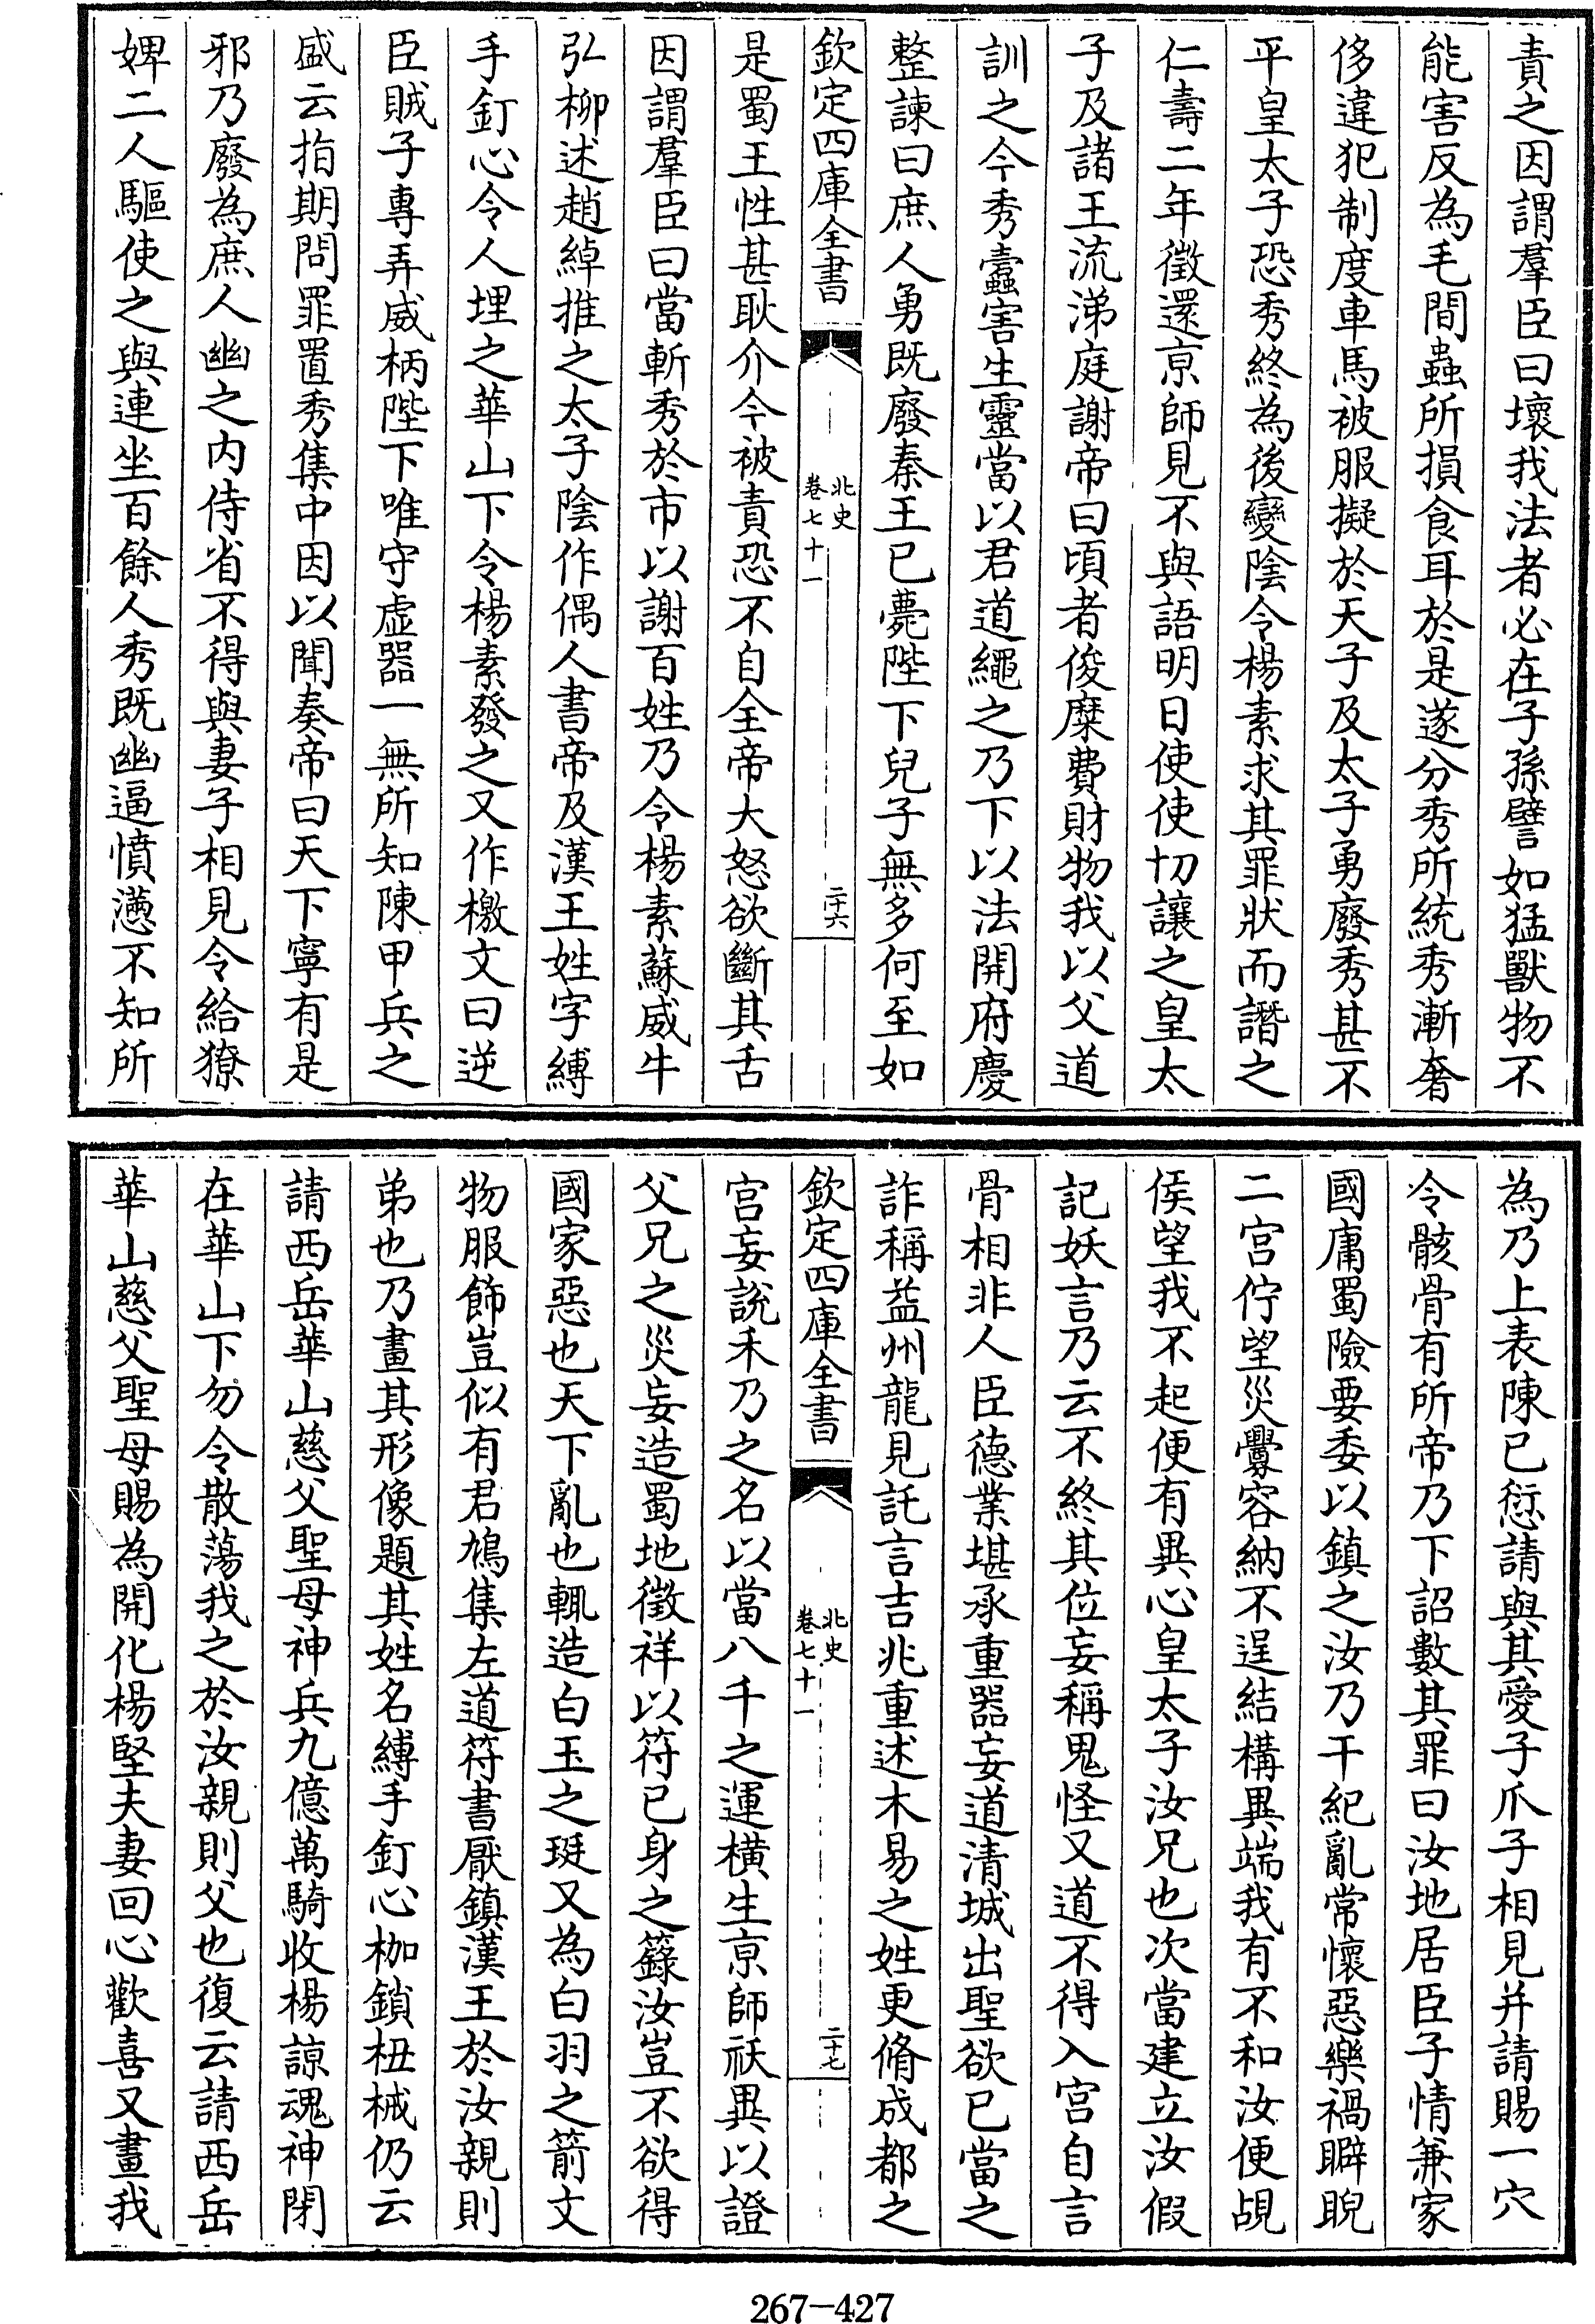 責之因謂羣臣曰壞我法者必在子孫譬如猛獸物不
能害反為毛間蟲所損食耳於是遂分秀所統秀漸奢
侈違犯制度車馬被服擬於天子及太子勇廢秀甚不
平皇太子恐秀終為後變陰令楊素求其罪狀而譖之
仁壽二年徵還京師見不與語明日使使切讓之皇太
子及諸王流涕庭謝帝曰頃者俊糜費財物我以父道
訓之今秀蠹害生靈當以君道繩之乃下以法開府慶
整諫曰庶人勇既廢秦王已薨陛下兒子無多何至如
欽定四庫全書
北史
卷七十一
二十六
是蜀王性甚耿介今被責恐不自全帝大怒欲斷其舌
因謂羣臣曰當斬秀於市以謝百姓乃令楊素蘇威牛
弘柳述趙綽推之太子陰作偶人書帝及漢王姓字縛
手釘心令人埋之華山下令楊素發之又作檄文曰逆
臣賊子專弄威柄陛下唯守虛器一無所知陳甲兵之
盛云指期問罪置秀集中因以聞奏帝曰天下寧有是
邪乃廢為庶人幽之內侍省不得與妻子相見令給獠
婢二人驅使之與連坐百餘人秀既幽逼憤懣不知所
為乃上表陳已愆請與其愛子爪子相見并請賜一穴
令骸骨有所帝乃下詔數其罪曰汝地居臣子情兼家
國庸蜀險要委以鎮之汝乃干紀亂常懷惡樂禍睥睨
二宮佇望災釁容納不逞結構異端我有不和汝便覘
侯望我不起便有異心皇太子汝兄也次當建立汝假
記妖言乃云不終其位妄稱鬼怪又道不得入宮自言
骨相非人臣德業堪承重器妄道清城出聖欲已當之
詐稱益州龍見託言吉兆重述木易之姓更脩成都之
欽定四庫全書
北史
卷七十一
二十七
宮妄說禾乃之名以當八千之運橫生京師祅異以證
父兄之災妄造蜀地徵祥以符已身之籙汝豈不欲得
國家惡也天下亂也輒造白玉之珽又為白羽之箭文
物服飾豈似有君鳩集左道符書厭鎮漢王於汝親則
弟也乃畫其形像題其姓名縛手釘心枷鎖杻械仍云
請西岳華山慈父聖母神兵九億萬騎收楊諒魂神閉
在華山下勿令散蕩我之於汝親則父也復云請西岳
華山慈父聖母賜為開化楊堅夫妻回心歡喜又畫我
267-427